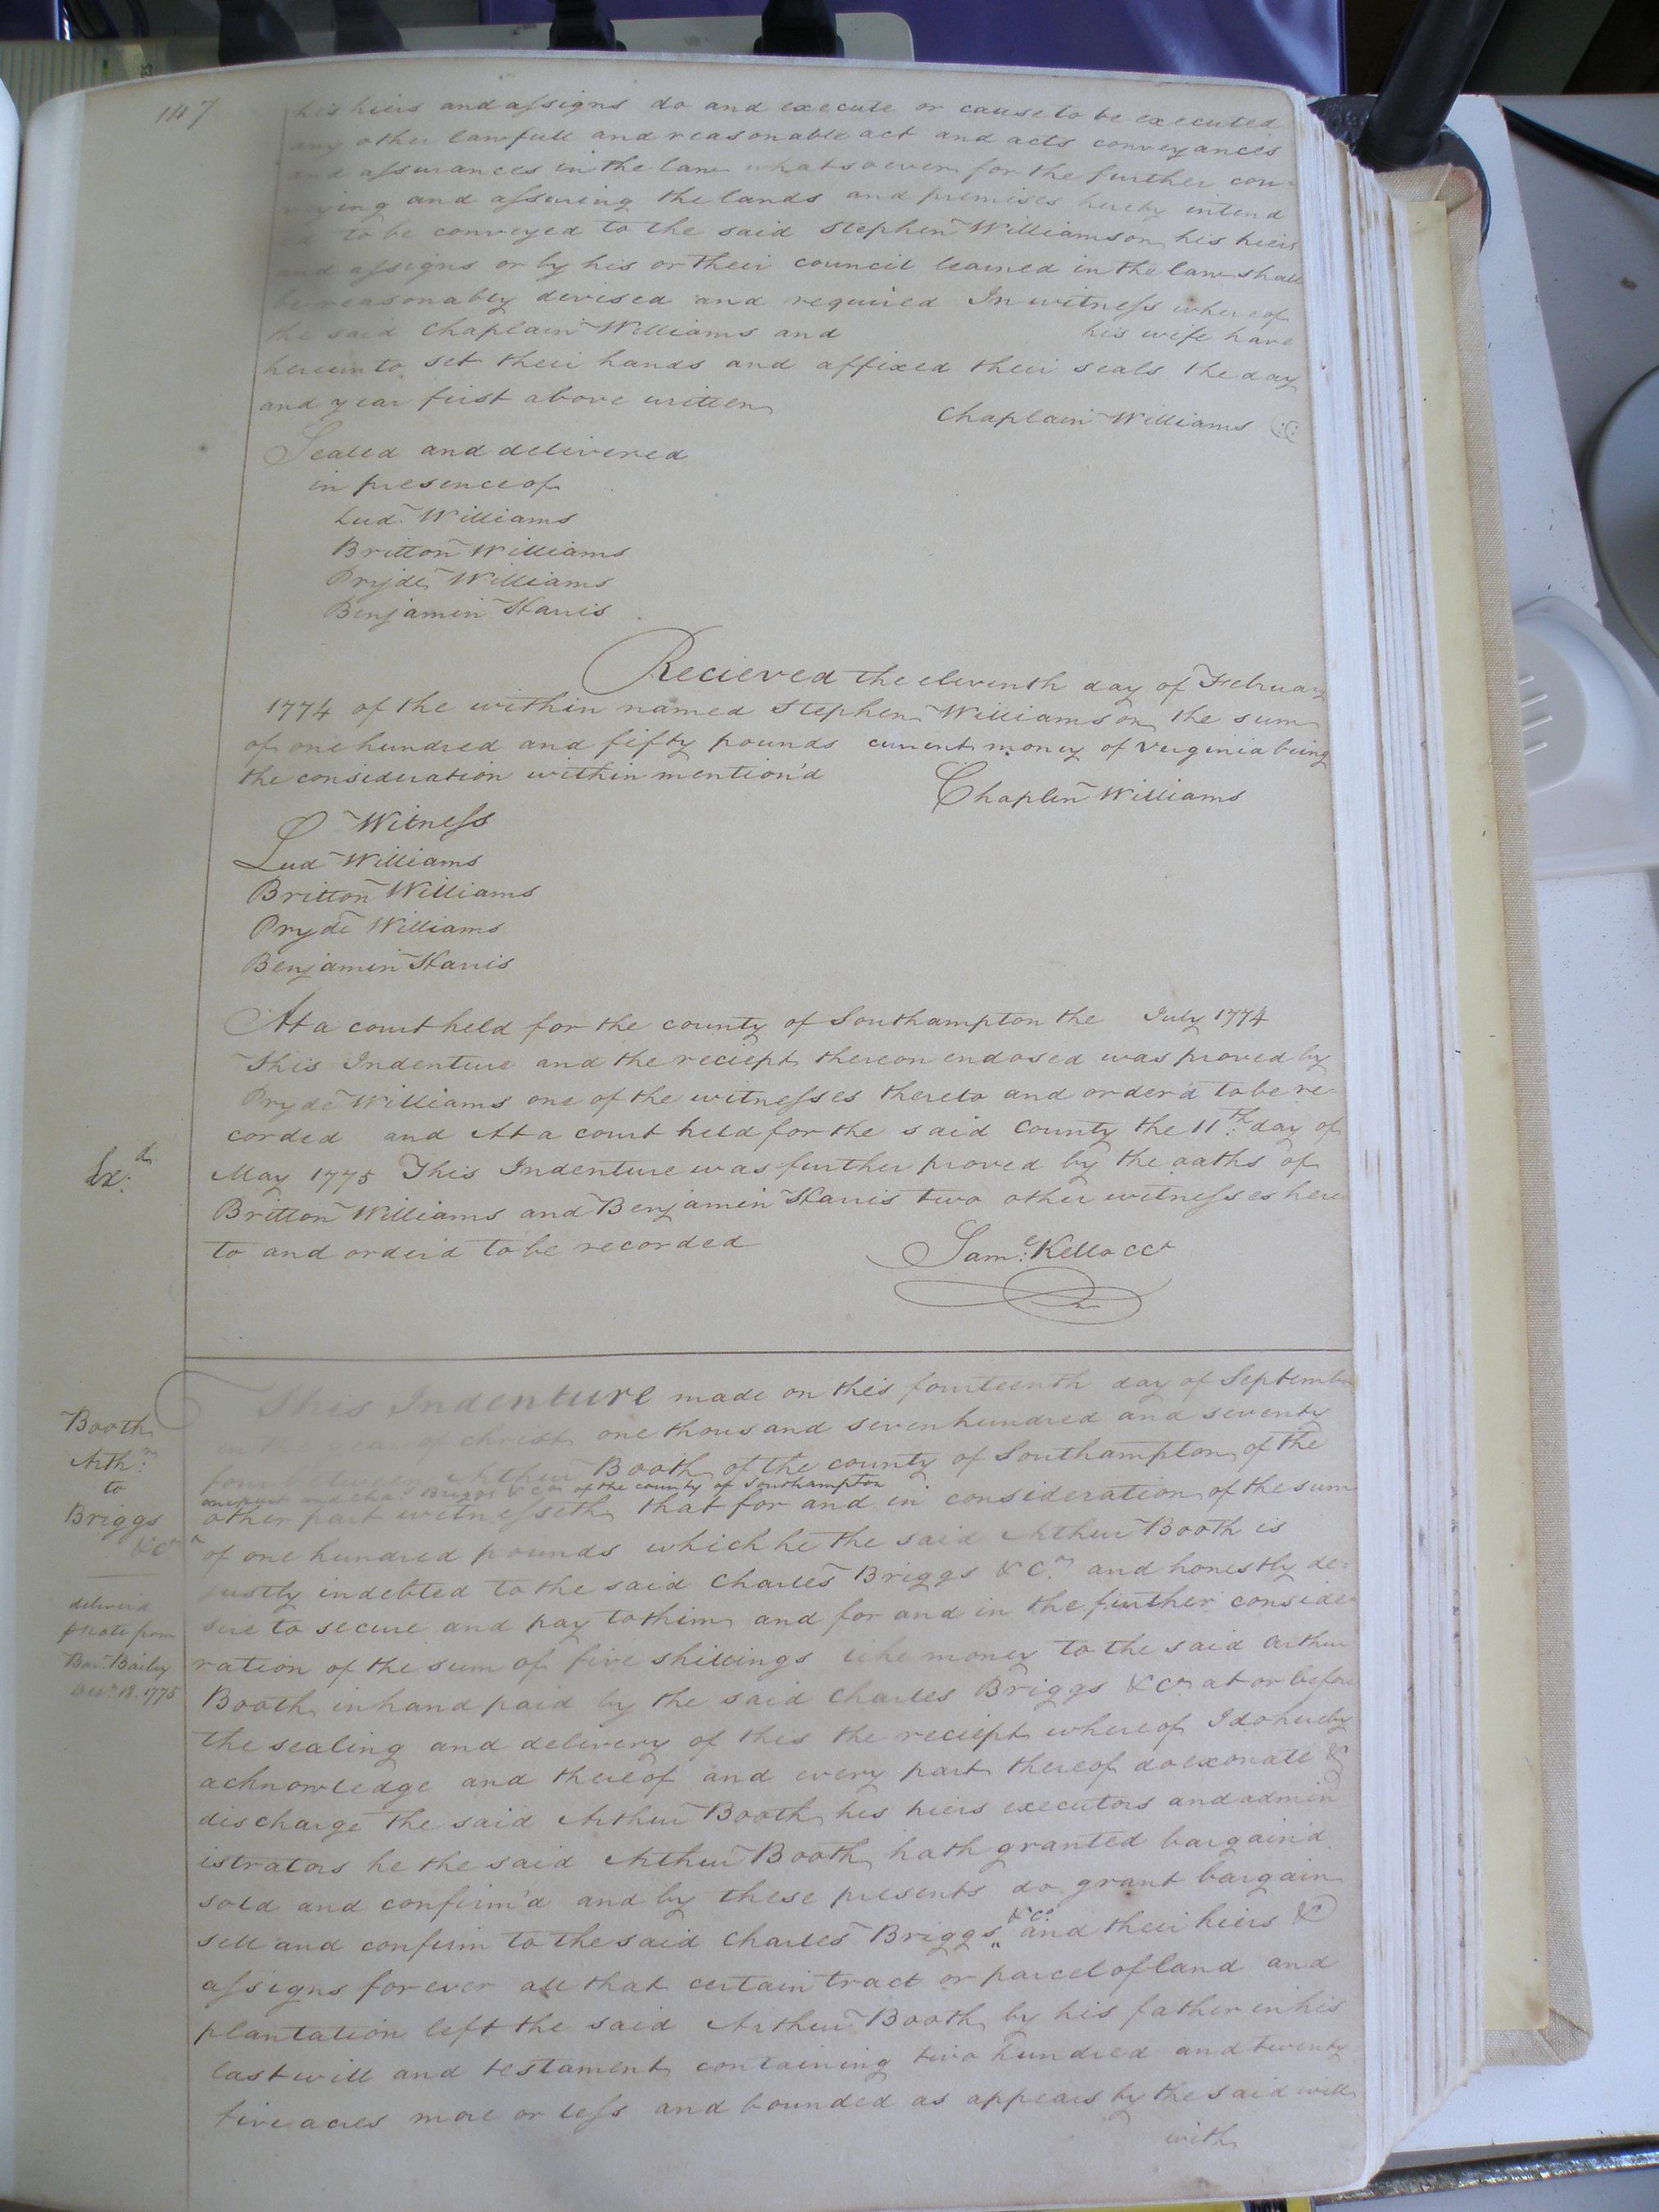 147
his hiers and assigns do and execute or cause to be executed
any other lawfull and reasonable act and acts conveyances
and assurances in the law whatsoever for the further con-
veying and assuring the lands and premises hereby intend
ed to be conveyed to the said Stephen Williamson his hiers
and assigns or by his or their council learned in the law shall
be reasonably devised and required In witness whereof
the said Chaplain Williams and his wife have
hereunto set their hands and affixed their seals the day
and year first above written
Chaplain Williams
Sealed and delivered
in presence of
Lud. Williams
Britton Williams
Pryde Williams
Benjamin Harris
Recieved the eleventh day of February
1774 of the within named Stephen Williamson the sum
of one hundred and fifty pounds current money of Verginia being
the consideration within mention'd
Chaplin Williams
Witness
Lud Williams
Britton Williams
Pryde Williams
Benjamin Harris
At a court held for the county of Southampton the July 1774
This Indenture and the reciept thereon endosed was proved by
Pryde Williams one of the witnesses thereto and order'd to be re-
corded and At a court held for the said County the 11th day of
May 1775 This Indenture was further proved by the oaths of
Britton Williams and Benjamin Harris two other witnesses here
to and order'd to be recorded
Ex:d
Saml: Kello CCt
Booth
Arthr:
to
Briggs
&Co
deliverd
Bailey
18. 1775
This Indenture made on this fourteenth day of September
in the year of christ one thousand seven hundred and seventy
four between Arthur Booth of the county of Southampton of the
one part and Chas. Briggs & Co of the county of Southampton
other part witnesseth that for and in consideration of the sum
of one hundred pounds which he the said Arthur Booth is
justly indebted to the said Charles Briggs & Co. and honestly de=
sire to secure and pay to them and for and in the further conside
ration of the sum of five shillings like money to the said Arthur
Booth in hand paid by the said Charles Briggs & Co at or before
the sealing and delivery of this the reciept whereof I do hereby
acknowledge and thereof and every part thereof do exonate &
discharge the said Arthur Booth his hiers executors and admin
istrators he the said Arthur Booth hath granted bargain'd
sold and confirm'd and by these presents do grant bargain
sell and confirm to the said Charles Briggs & Co. and their hiers &
assigns forever all that certain tract or parcel of land and
plantation left the said Arthur Booth by his father in his
last will and testament containing two hundred and twenty
five acres more or less and bounded as appears by the said will
with